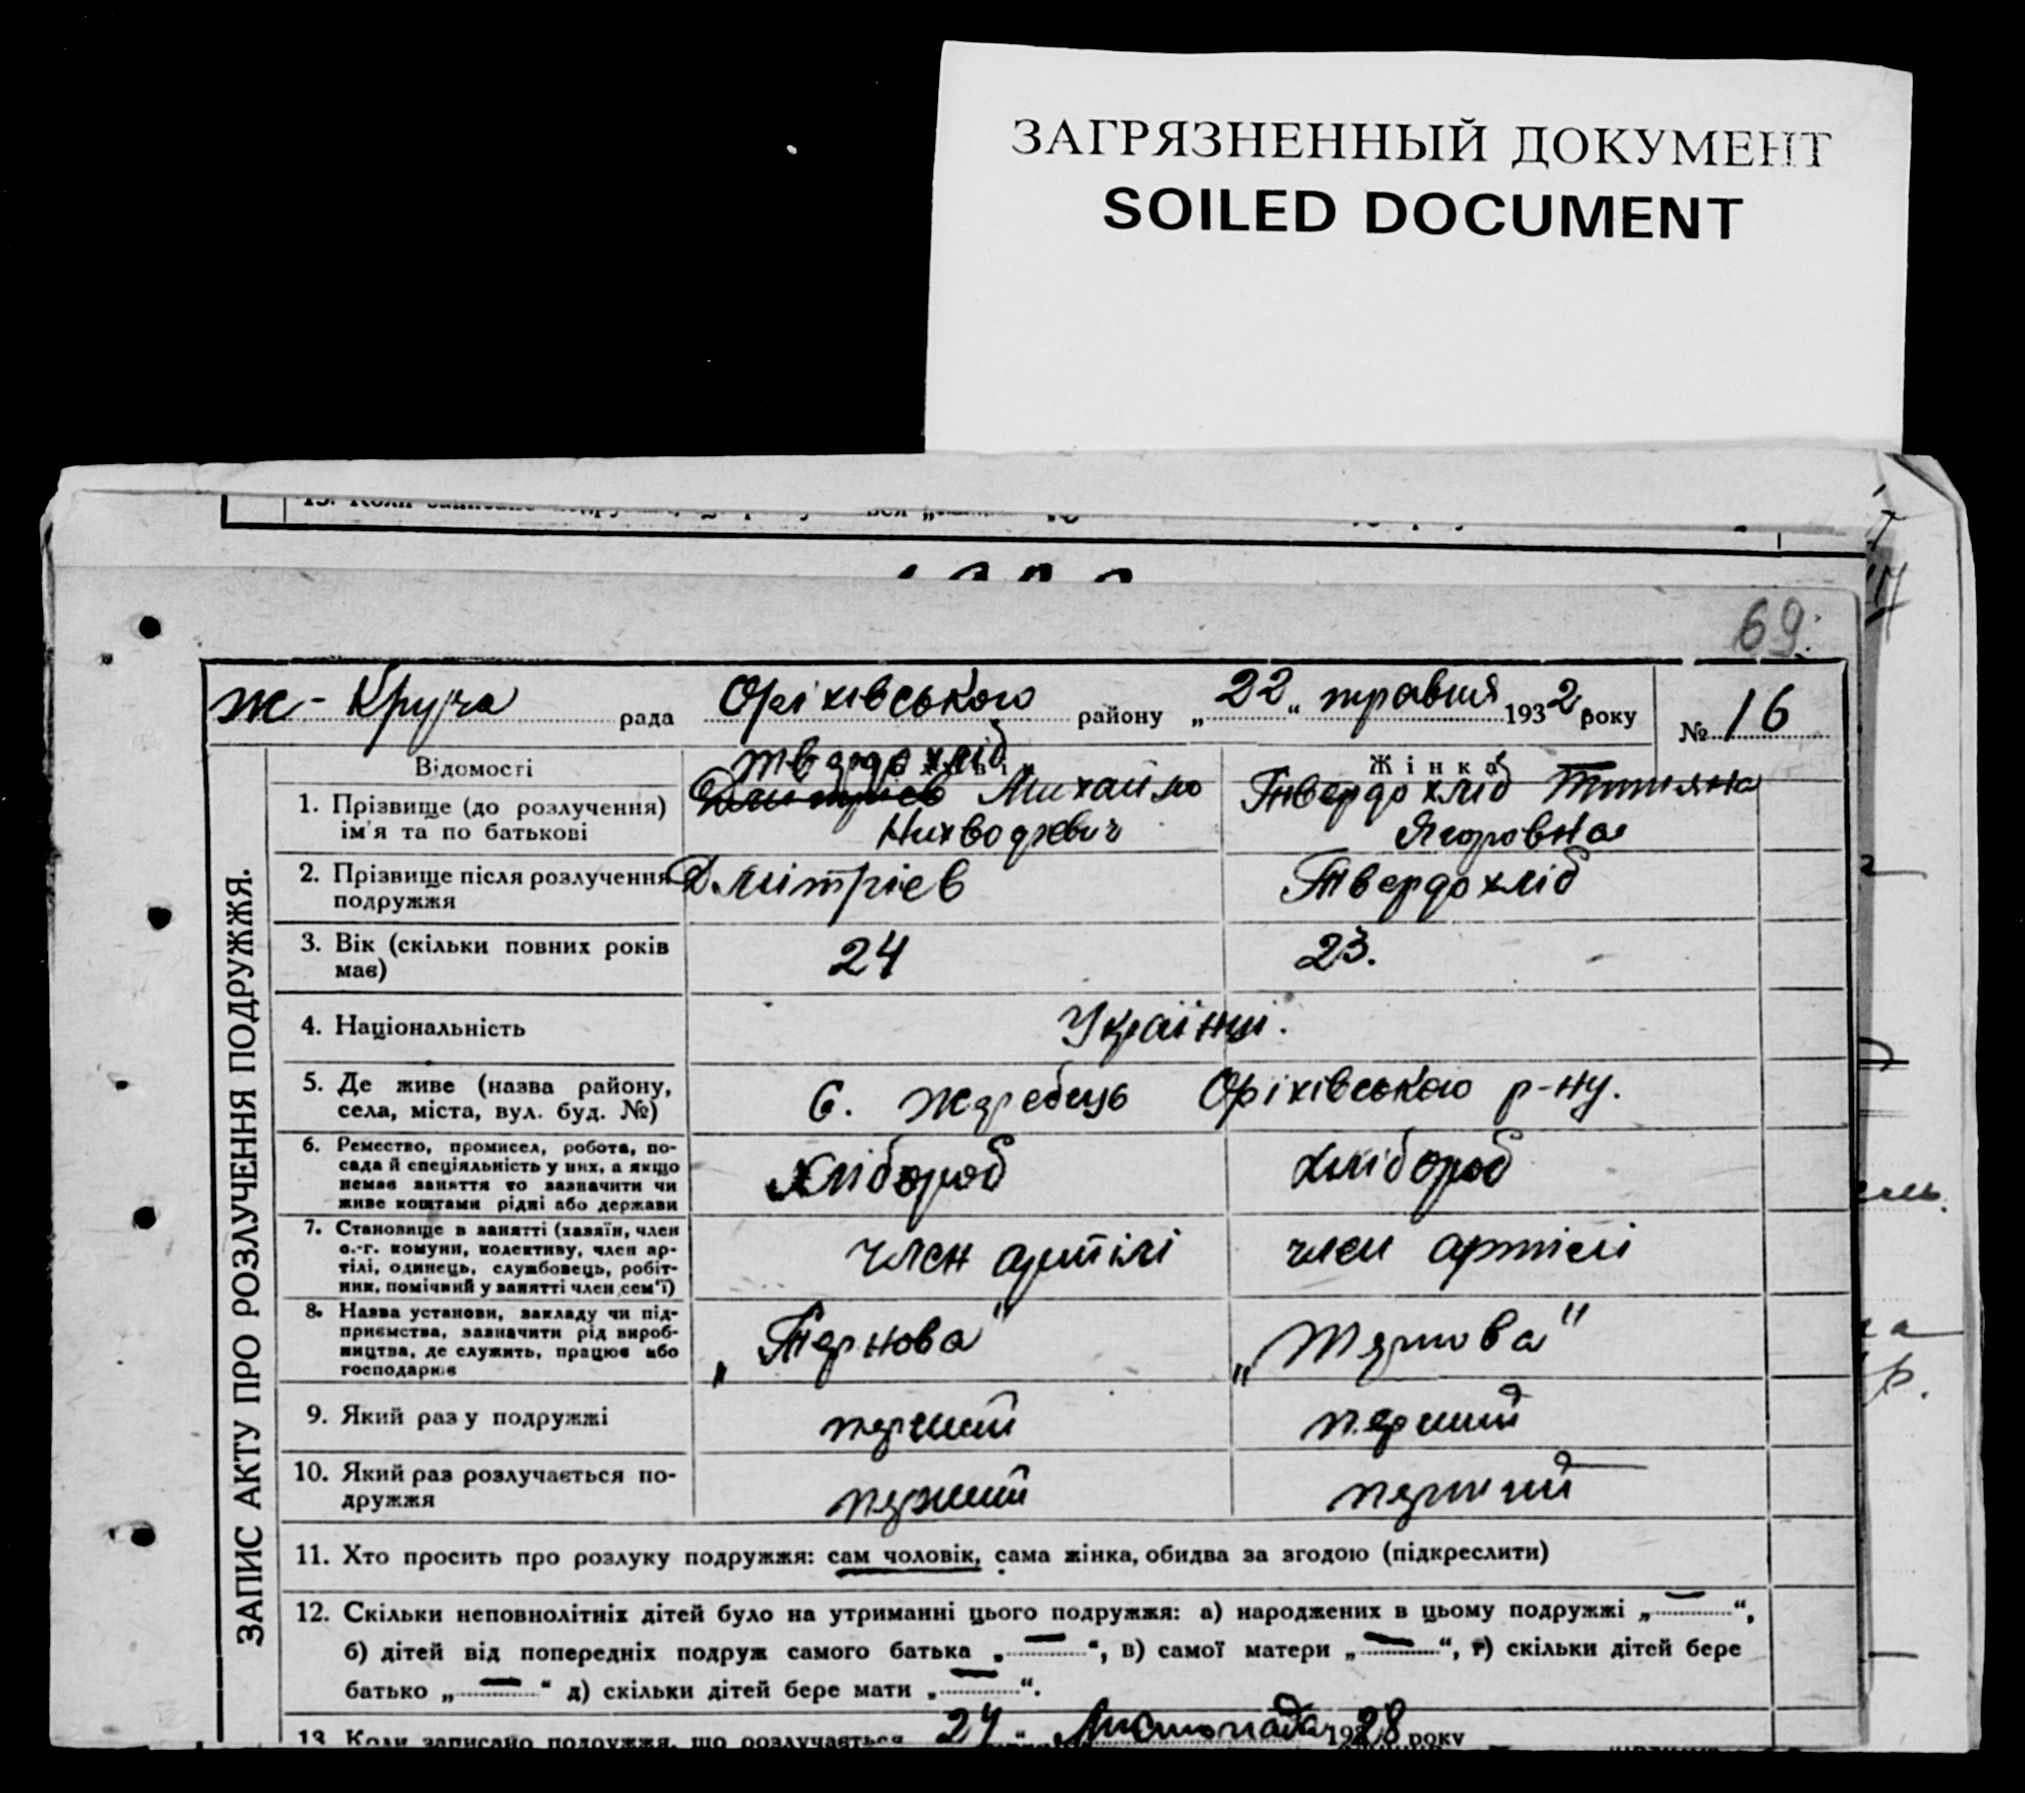 ЗАГРЯЗНЕННЫЙ ДОКУМЕНТ
SOILED DOCUMENT
69.
Ж-Круча рада Оріхівського району „22“ травня 1932 року № 16
ЗАПИС АКТУ ПРО РОЗЛУЧЕННЯ ПОДРУЖЖЯ.
Відомості
Твердохліб
Жінка
1. Прізвище (до розлучення) ім'я та по батькові
Дмитрієв Михайло
Твердохліб Тетяна
Ягоровна
2. Прізвище після розлучення подружжя
Дмітрієв
Твердохліб
3. Вік (скільки повних років має)
24
23.
4. Національність
Українці.
5. Де живе (назва району, села, міста, вул. буд. №)
С. Жеребець Оріхівського р-ну.
6. Ремество, промисел, робота, посада й спеціяльність у них, а якщо немає заняття то зазначити чи живе коштами рідні або держави
Хлібороб
хлібороб
7. Становище в занятті (хазяїн, член с.-г. комуни, колективу, член артілі, одинець, службовець, робітник, помічний у занятті член сем'ї)
член артілі
член артілі
8. Назва установи, закладу чи підприємства, зазначити рід виробництва, де служить, працює або господарює
„Тернова"
„Тернова"
9. Який раз у подружжі
перший
перший
10. Який раз розлучається подружжя
перший
перший
11. Хто просить про розлуку подружжя: сам чоловік, сама жінка, обидва за згодою (підкреслити)
12. Скільки неповнолітніх дітей було на утриманні цього подружжя: а) народжених в цьому подружжі „—“,
б) дітей від попередніх подруж самого батька „—“, в) самої матери „—“, г) скільки дітей бере
батько „—“ д) скільки дітей бере мати „—“.
13 Коли записано подружжя, що розлучається 24 Листопада 1928 року